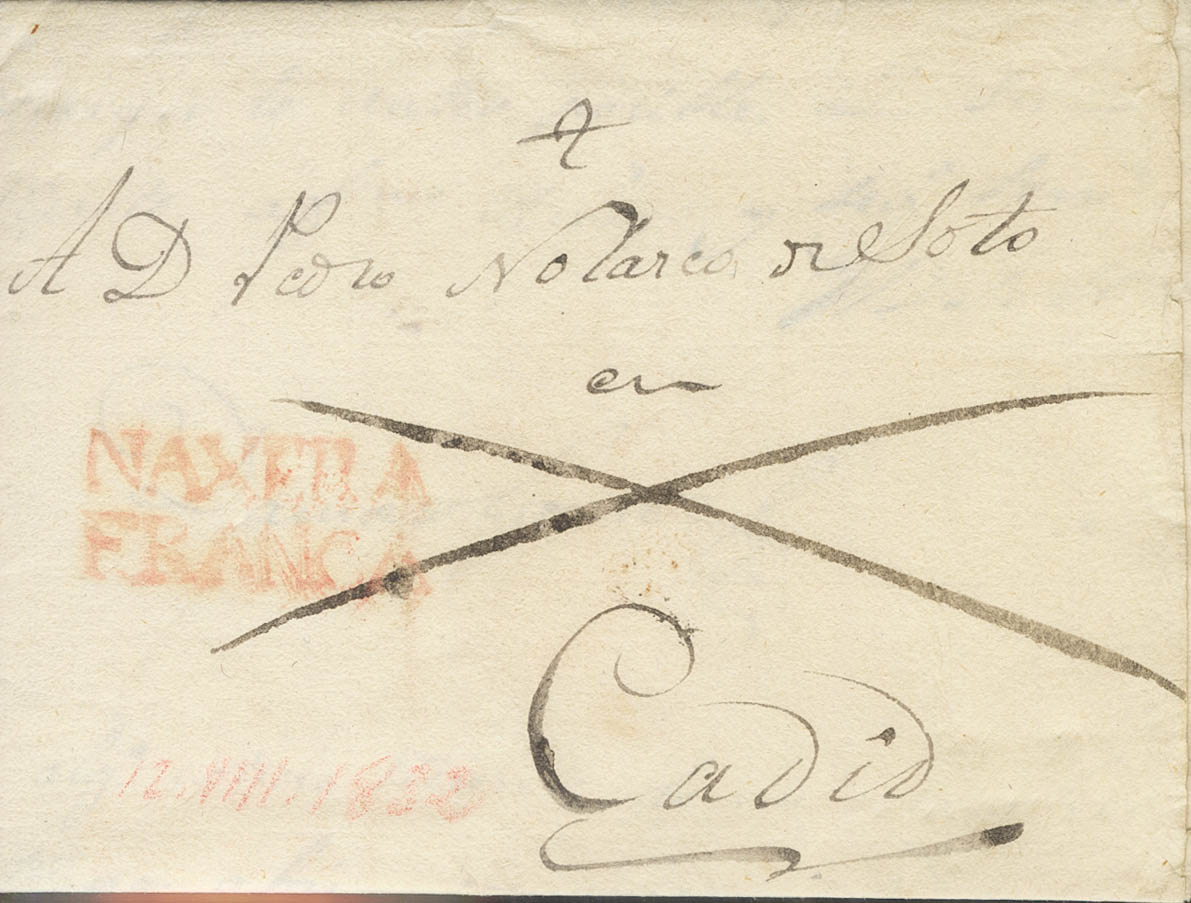 A D Pedro Nolasco de Soto
en
NAXERA
FRANCA
Cadid
12.VIII.1832